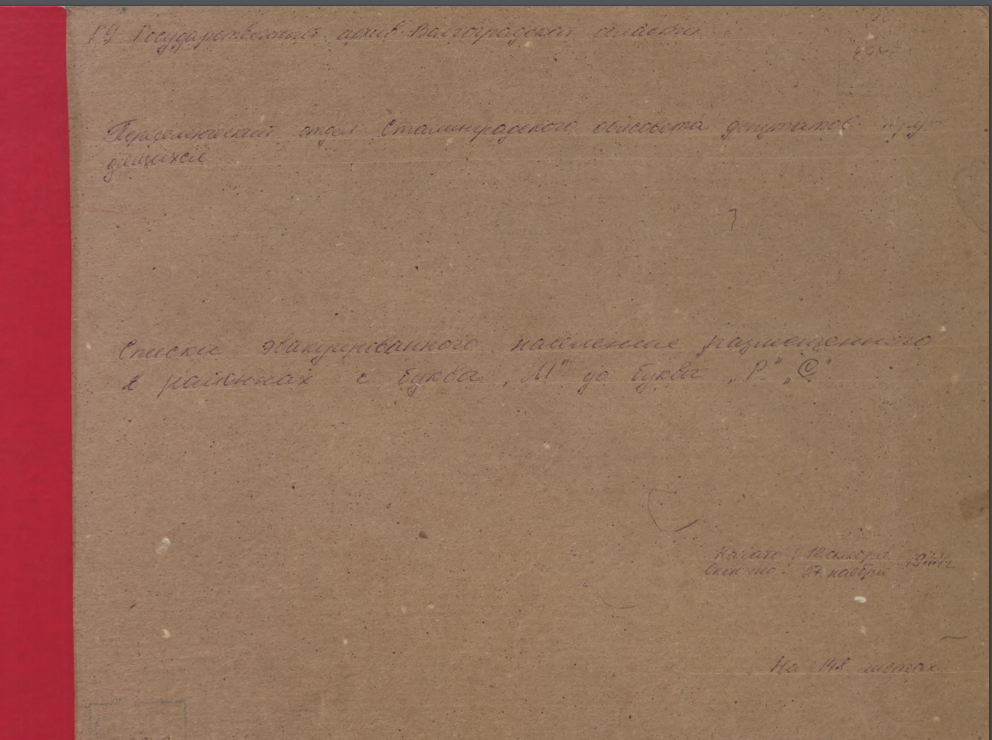 ГУ Государственный архив Волгоградской области
Переселенческий отдел Сталинградского облсовета депутатов тру-
дящихся
Списки эвакуированного населения размещенного
в районах с буквы „М" до буквы „Р" „С"
Начато: 10 октября
Окончено: 27 ноября
На 148 листах